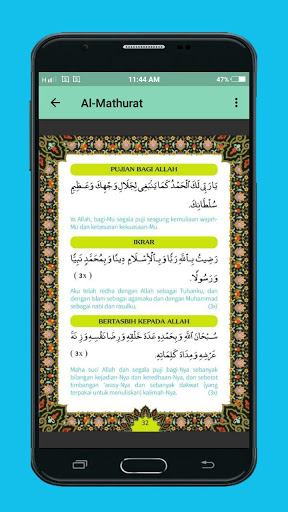 11:44 AM
47%
Al-Mathurat
PUJIAN BAGI ALLAH
يَا رَبِّي لَكَ الْحَمْدُ كَمَا يَنْبَغِي لِجَلَالِ وَجْهِكَ وَعَظِيمِ
سُلْطَانِكَ.
Ya Allah, bagi-Mu segala puji seagung kemuliaan wajah-
Mu dan kebesaran kekuasaan-Mu.
IKRAR
رَضِيْتُ بِاللَّهِ رَبًّا وَبِالْإِسْلَامِ دِينًا وَبِمُحَمَّدٍ نَبِيًّا
وَرَسُولًا. (3x)
Aku telah redha dengan Allah sebagai Tuhanku, dan
dengan Islam sebagai agamaku dan dengan Muhammad
sebagai nabi dan rasulku. (3x)
BERTASBIH KEPADA ALLAH
سُبْحَانَ اللَّهِ وَبِحَمْدِهِ عَدَدَ خَلْقِهِ وَرِضَا نَفْسِهِ وَزِنَةَ
عَرْشِهِ وَمِدَادَ كَلِمَاتِهِ. (3x)
Maha suci Allah dan segala puji bagi-Nya sebanyak
bilangan kejadian-Nya dan keredhaan-Nya, dan seberat
timbangan 'arasy-Nya dan sebanyak dakwat (yang
terpakai untuk menuliskan) kalimah-Nya. (3x)
32